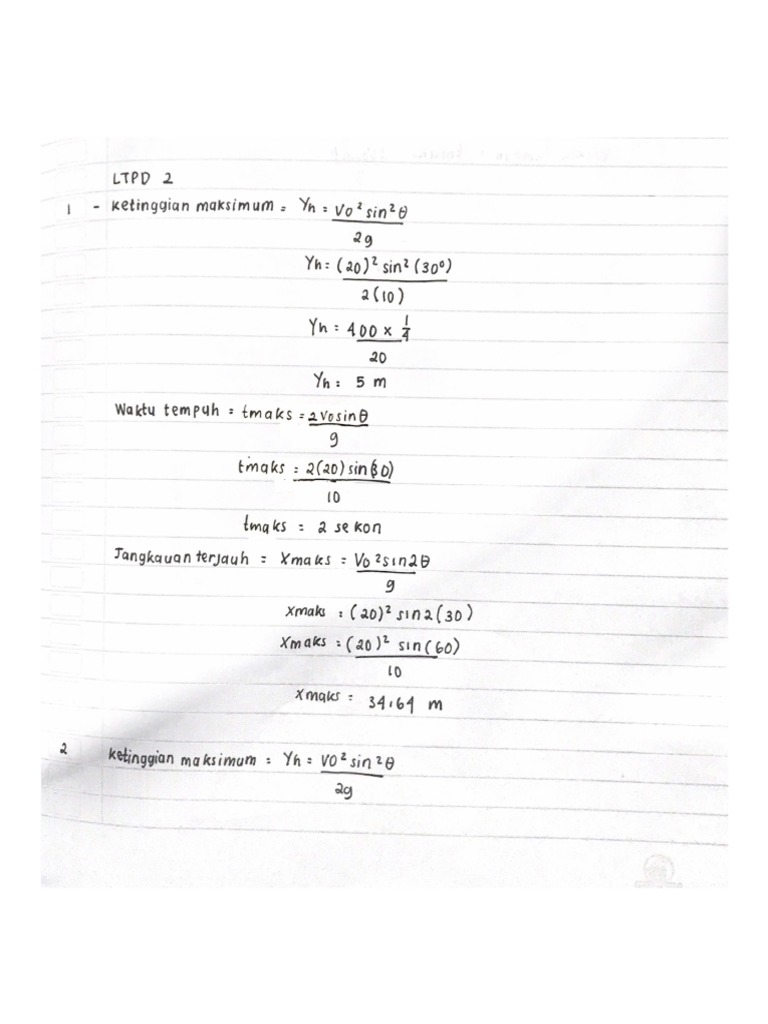 LTPD 2
1 - Ketinggian maksimum = Yh = Vo² sin²θ
2g
Yh = (20)² sin² (30⁰)
2(10)
Yh = 400 x 1/4
20
Yh = 5 m
Waktu tempuh = tmaks = 2 Vo sinθ
g
tmaks = 2(20) sin(30)
10
tmaks = 2 sekon
Jangkauan terjauh = Xmaks = Vo² sin2θ
g
Xmaks = (20)² sin2(30)
Xmaks = (20)² sin(60)
10
Xmaks = 34,64 m
2 Ketinggian maksimum = Yh = Vo² sin²θ
2g